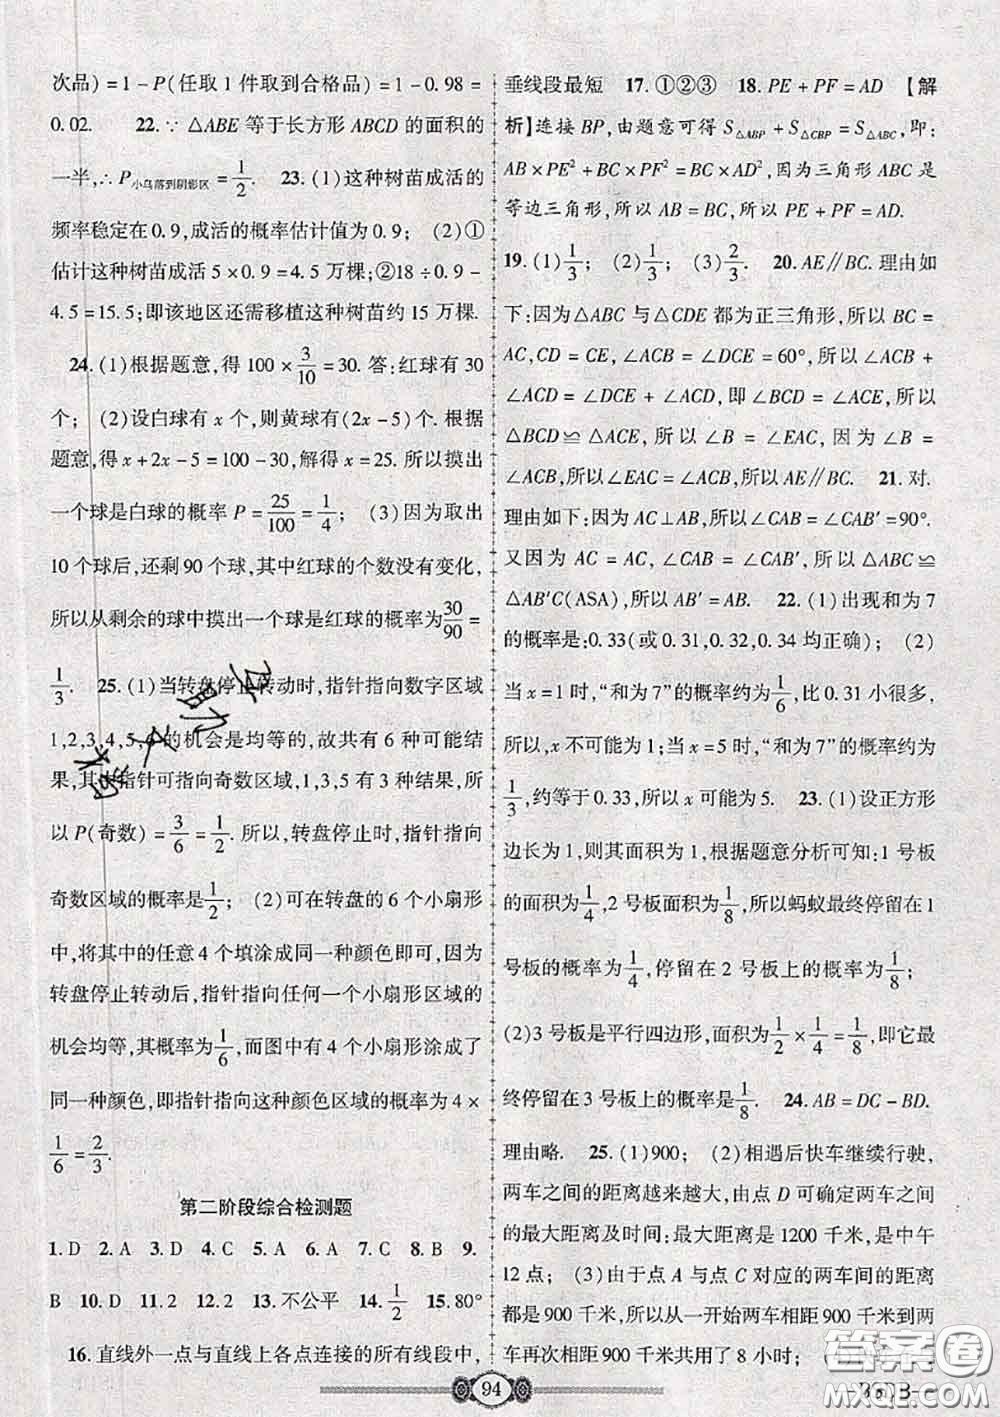 次品) = 1 - P(任取 1 件取到合格品) = 1 - 0.98 =
0.02. 22. ∵ △ABE 等于长方形 ABCD 的面积的
一半,∴ P小鸟落到阴影区 = 1/2. 23. (1)这种树苗成活的
频率稳定在 0.9,成活的概率估计值为 0.9; (2)①
估计这种树苗成活 5 × 0.9 = 4.5 万棵;②18 ÷ 0.9 -
4.5 = 15.5;即该地区还需移植这种树苗约 15 万棵.
24. (1)根据题意,得 100 × 3/10 = 30. 答:红球有 30
个; (2)设白球有 x 个,则黄球有(2x - 5)个. 根据
题意,得 x + 2x - 5 = 100 - 30,解得 x = 25. 所以摸出
一个球是白球的概率 P = 25/100 = 1/4; (3)因为取出
10 个球后,还剩 90 个球,其中红球的个数没有变化,
所以从剩余的球中摸出一个球是红球的概率为 30/90 =
1/3. 25. (1)当转盘停止转动时,指针指向数字区域
1,2,3,4,5,6 的机会是均等的,故共有 6 种可能结
果,其中指针可指向奇数区域,1,3,5 有 3 种结果,所
以 P(奇数) = 3/6 = 1/2. 所以,转盘停止时,指针指向
奇数区域的概率是 1/2; (2)可在转盘的 6 个小扇形
中,将其中的任意 4 个填涂成同一种颜色即可,因为
转盘停止转动后,指针指向任何一个小扇形区域的
机会均等,其概率为 1/6,而图中有 4 个小扇形涂成了
同一种颜色,即指针指向这种颜色区域的概率为 4 ×
1/6 = 2/3.
第二阶段综合检测题
1. D 2. A 3. D 4. C 5. A 6. A 7. C 8. B 9.
B 10. D 11. 2 12. 2 13. 不公平 14. 1/2 15. 80°
16. 直线外一点与直线上各点连接的所有线段中,
垂线段最短 17. ①②③ 18. PE + PF = AD 【解
析】连接 BP,由题意可得 S△ABP + S△CBP = S△ABC,即:
AB × PE² + BC × PF² = BC × AD²,因为三角形 ABC 是
等边三角形,所以 AB = BC,所以 PE + PF = AD.
19. (1) 1/3; (2) 1/3; (3) 2/3. 20. AE∥BC. 理由如
下:因为△ABC 与△CDE 都为正三角形,所以 BC =
AC,CD = CE,∠ACB = ∠DCE = 60°,所以 ∠ACB +
∠ACD = ∠DCE + ∠ACD,即 ∠BCD = ∠ACE,所以
△BCD≌△ACE,所以 ∠B = ∠EAC,因为 ∠B =
∠ACB,所以∠EAC = ∠ACB,所以 AE∥BC. 21. 对.
理由如下:因为 AC⊥AB,所以∠CAB = ∠CAB′ = 90°.
又因为 AC = AC,∠CAB = ∠CAB′,所以△ABC≌
△AB′C(ASA),所以 AB′ = AB. 22. (1)出现和为 7
的概率是:0.33(或 0.31,0.32,0.34 均正确); (2)
当 x = 1 时,“和为 7”的概率约为 1/6,比 0.31 小很多,
所以,x 不可能为 1;当 x = 5 时,“和为 7”的概率约为
1/3,约等于 0.33,所以 x 可能为 5. 23. (1)设正方形
边长为 1,则其面积为 1,根据题意分析可知:1 号板
的面积为 1/4,2 号板面积为 1/8,所以蚂蚁最终停留在 1
号板的概率为 1/4,停留在 2 号板上的概率为 1/8;
(2)3 号板是平行四边形,面积为 1/2 × 1/4 = 1/8,即它最
终停留在 3 号板上的概率是 1/8. 24. AB = DC - BD.
理由略. 25. (1)900; (2)相遇后快车继续行驶,
两车之间的距离越来越大,由点 D 可确定两车之间的
最大距离及时间:最大距离是 1200 千米,是中午
12 点; (3)由于点 A 与点 C 对应的两车间的距离
都是 900 千米,所以从一开始两车相距 900 千米到两
车再次相距 900 千米共用了 8 小时;
94
答案圈